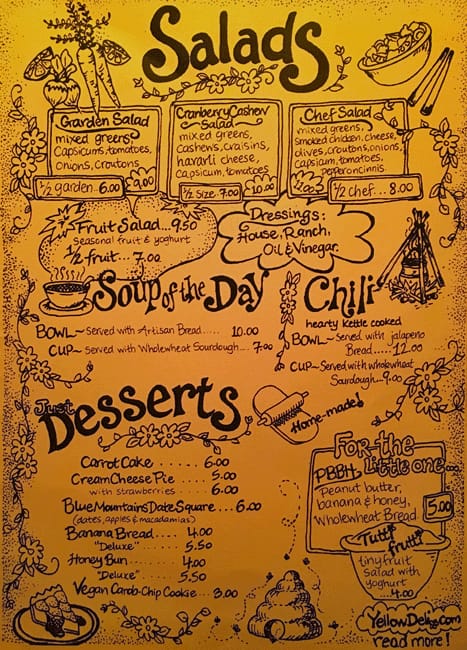 Salads
Garden Salad
mixed greens
Capsicums, tomatoes,
onions, Croutons
9.00
1/2 garden.. 6.00
Cranberry Cashew
Salad
mixed greens,
cashews, craisins,
havarli cheese,
capsicum, tomatoes
10.00
1/2 Size. 7.00
Chef Salad
mixed greens,
smoked chicken, cheese,
olives, croutons, onions,
capsicum, tomatoes,
peperoncinnis
1/2 chef ... 8.00
Fruit Salad... 9.50
Seasonal fruit & yoghurt
1/2 fruit... 7.00
Dressings:
House, Ranch,
Oil & Vinegar.
Soup of the Day
BOWL ~ Served with Artisan Bread..... 10.00
CUP ~ Served with Wholewheat Sourdough.... 7.00
Chili
hearty kettle cooked
BOWL ~ Served with jalapeno
Bread.....12.00
CUP ~ Served with wholewheat
Sourdough...9.00
Just
Desserts
Home-made!
Carrot Cake ...... 6.00
Cream Cheese Pie ..... 5.00
with strawberries ...... 6.00
Blue Mountains Date Square ... 6.00
(dates, apples & macadamias)
Banana Bread..... 4.00
"Deluxe" .... 5.50
Honey Bun ..... 4.00
"Deluxe" ..... 5.50
Vegan Carob-Chip Cookie... 3.00
For the
little one...
PBBH
Peanut butter,
banana & honey,
Wholewheat Bread
5.00
Tutti
frutti
tiny fruit
Salad with
yoghurt
....4.00
YellowDeli.com
read more!